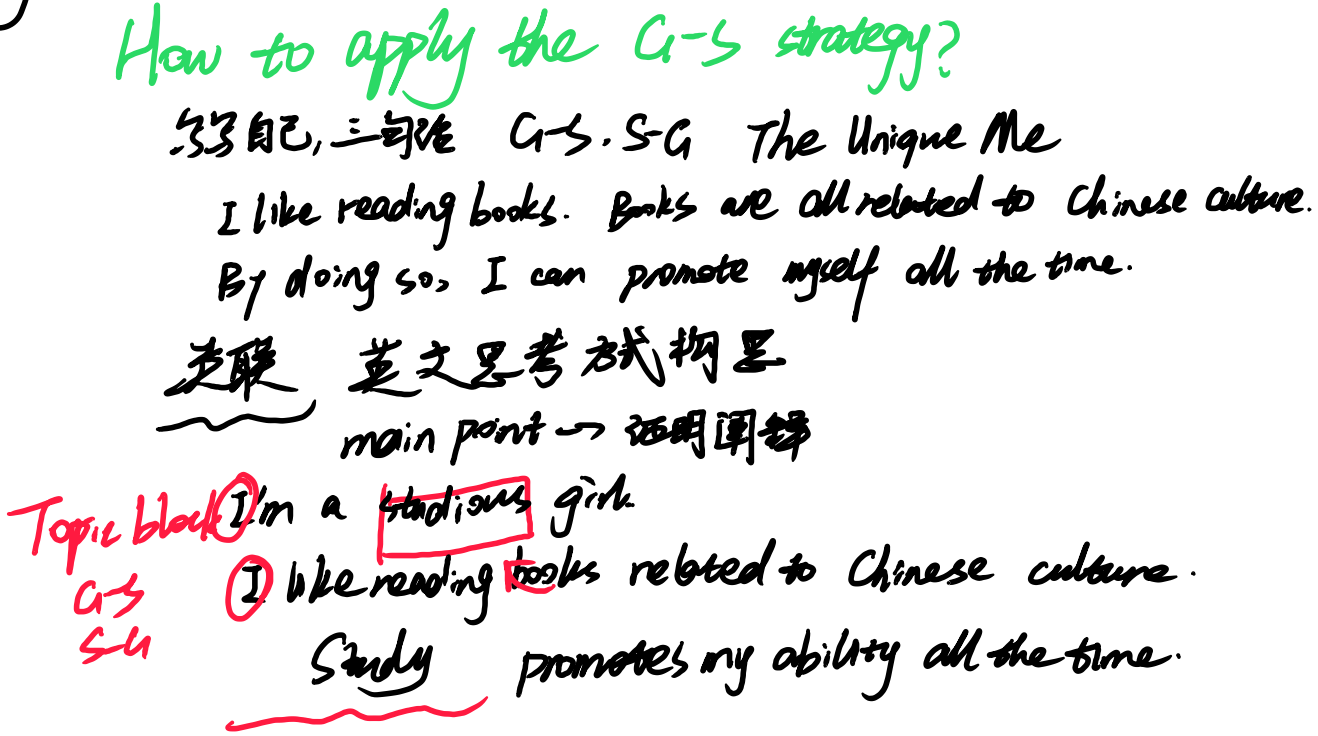 How to apply the G-S strategy?
写写自己,三句话 G-S. S-G The Unique Me
I like reading books. Books are all related to Chinese culture.
By doing so, I can promote myself all the time.
关联 英文思考方式构思
main point → 证明阐释
Topic block I'm a studious girl.
G-S I like reading books related to Chinese culture.
S-G Study promotes my ability all the time.